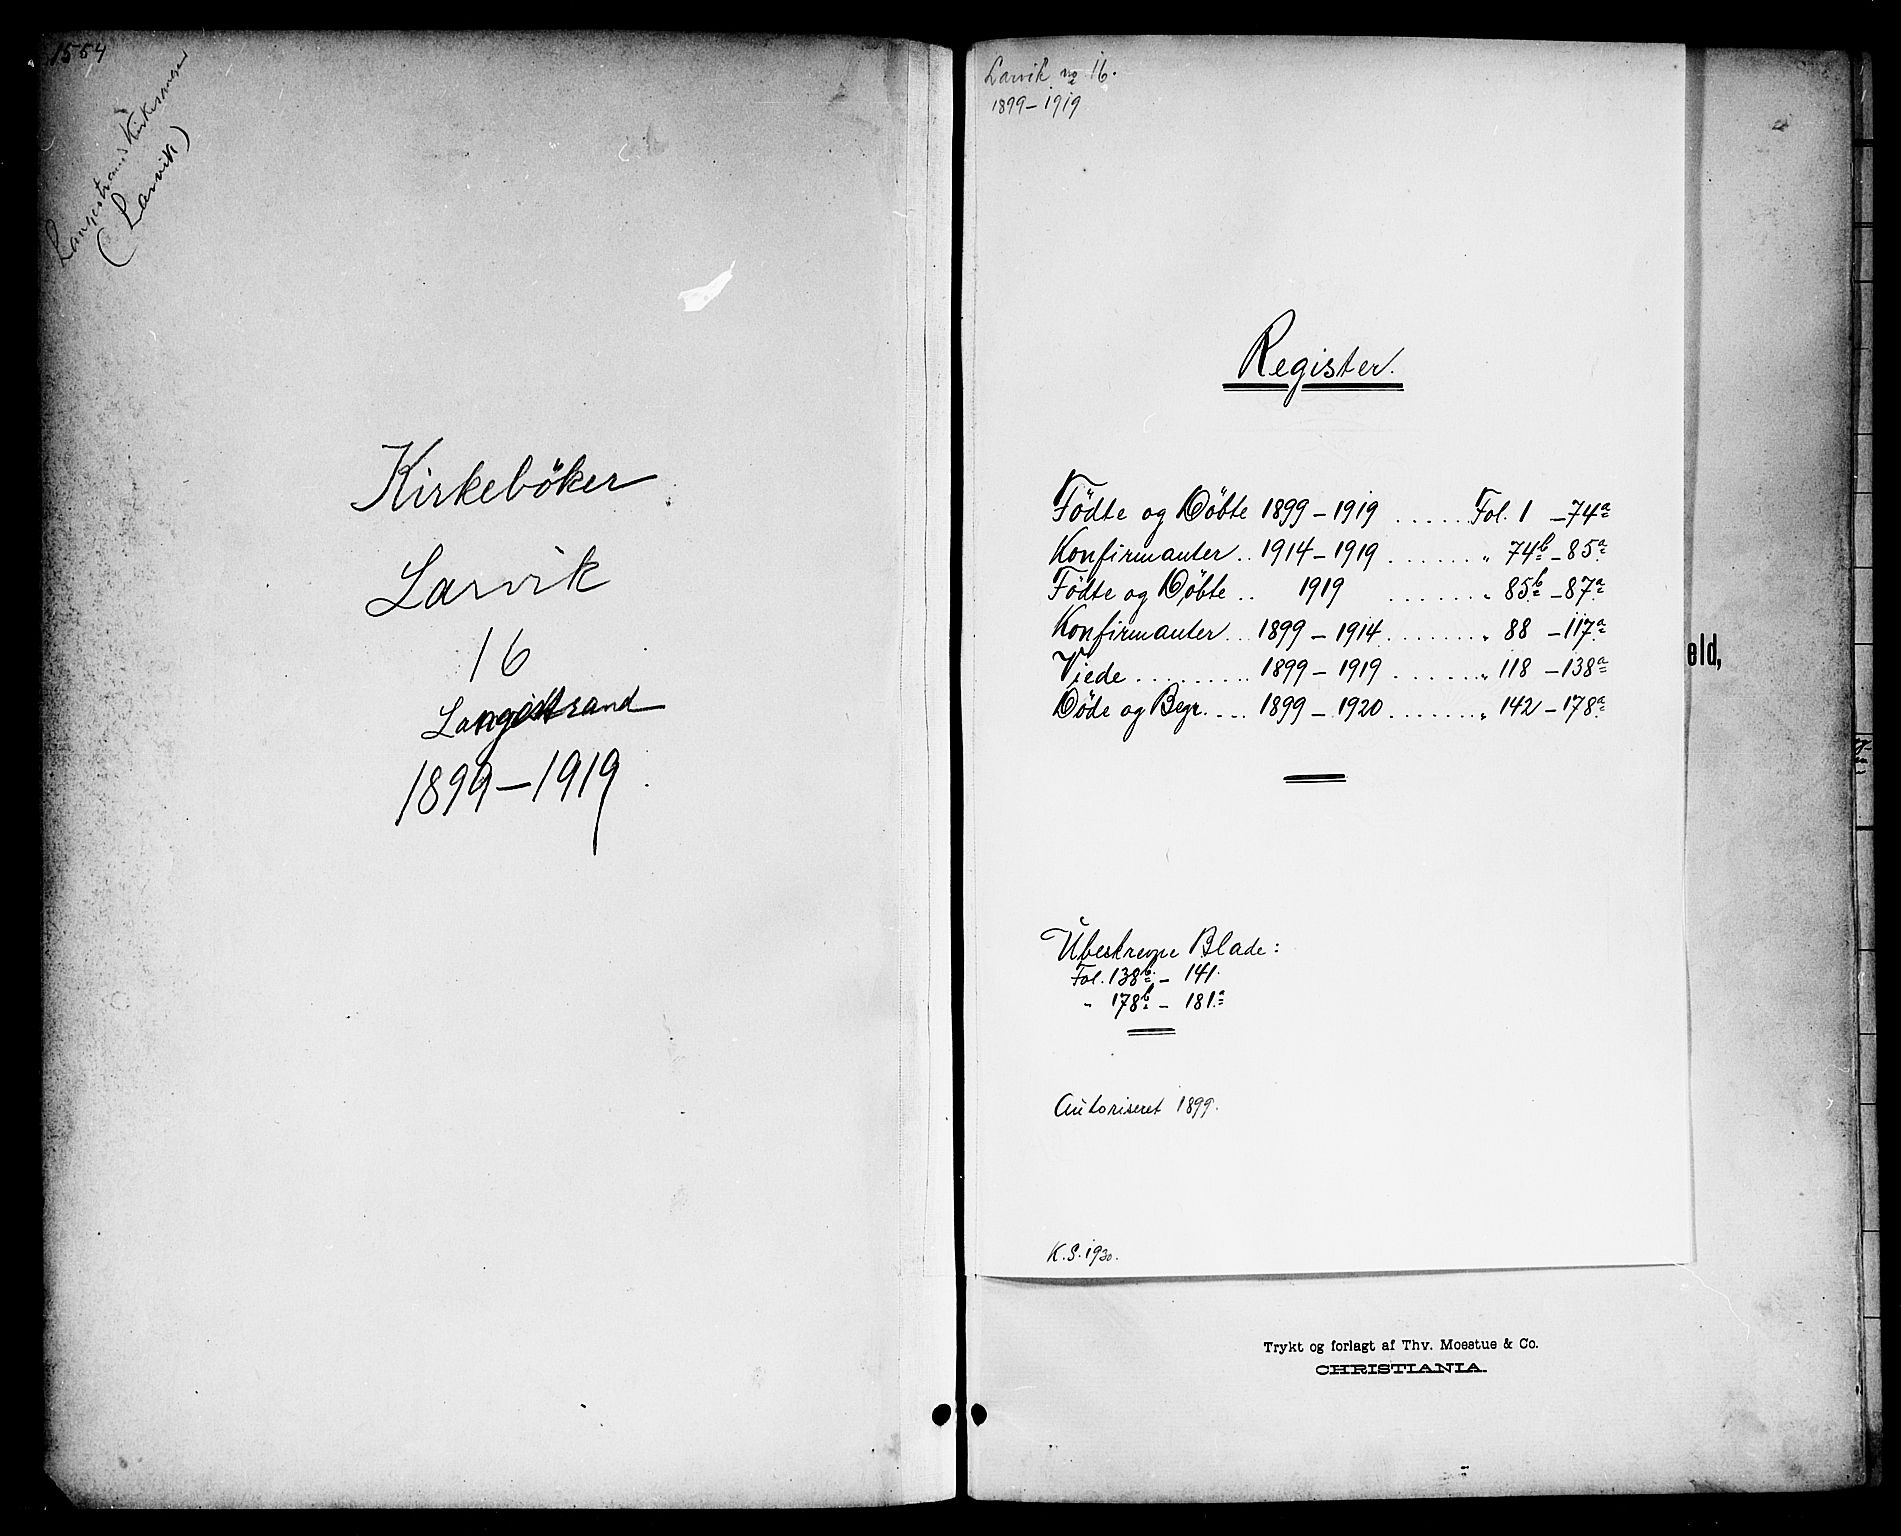 1554
Langestrand Kirkesanger
(Larvik)
Kirkeböker
Larvik
16
Langestrand
1899–1919.
Larvik no 16.
1899–1919
Register.
Födte og Döbte 1899–1919 ...... Fol. 1 – 74a
Konfirmanter .. 1914–1919 ....... " 74b – 85a
Födte og Döbte .. 1919 ....... " 85b – 87a
Konfirmanter ... 1899–1914 ....... " 88 – 117a
Viede ......... 1899–1919 ....... " 118 – 138a
Döde og Begr. ... 1899–1920 ....... " 142 – 178a
Ubeskrevne Blade:
Fol. 138b – 141.
" 178b – 181a
Autoriseret 1899.
K.S. 1930.
eld,
Trykt og forlagt af Thv. Moestue & Co.
CHRISTIANIA.